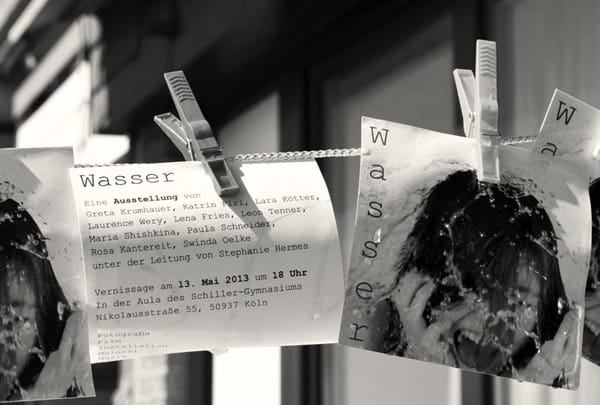 Wasser
Eine Ausstellung von
Greta Krumhauer, Katrin Birl, Lara Kötter,
Laurence Wery, Lena Fries, Leon Tenner,
Maria Shishkina, Paula Schneider,
Rosa Kantereit, Swinda Oelke
unter der Leitung von Stephanie Hermes
Vernissage am 13. Mai 2013 um 18 Uhr
In der Aula des Schiller-Gymnasiums
Nikolausstraße 55, 50937 Köln
Fotografie
Film
Installation
Malerei
Musik
Wasser
Wa